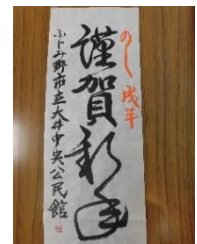 のし 戌年
謹賀新年
ふじみ野市立大井中央公民館